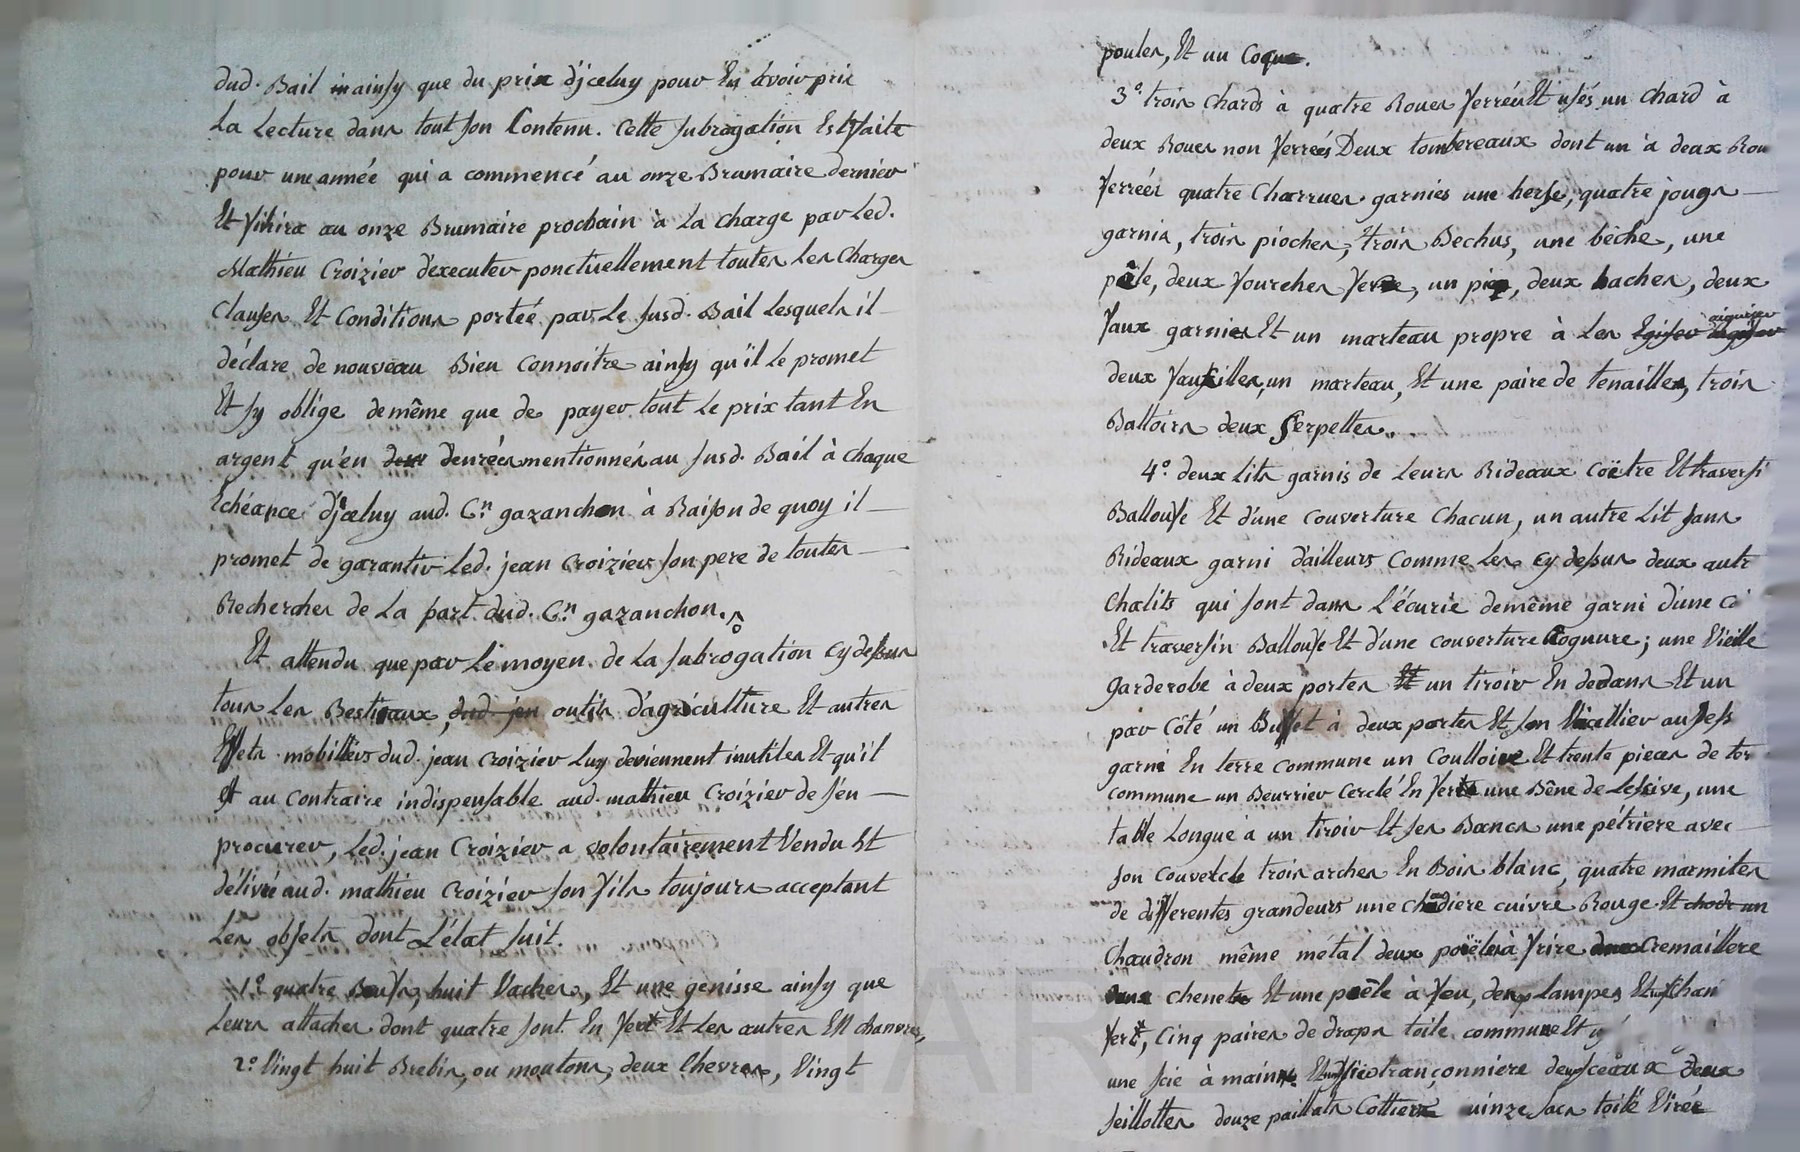 dud. Bail ainsy que du prix d'jceluy pour En avoir pris
La Lecture dans tout son Contenu. Cette subrogation Est faite
pour une année qui a commencé au onze Brumaire dernier
Et finira au onze Brumaire prochain à La charge par Led.
Mathieu Croizier d'executer ponctuellement toutes Les Charges
Clauses Et Conditions portée par Le susd. Bail Lesquels il
déclare de nouveau Bien Connoitre ainsy qu'il Le promet
Et sy oblige de même que de payer tout Le prix tant En
argent qu'en denrées mentionnés au susd. Bail à chaque
Echéance d'jceluy aud. Cn gazanchon à Raison de quoy il
promet de garantir Led. jean Croizier son pere de toutes
Recherches de La part dud. Cn gazanchon.
Et attendu que par Le moyen de La subrogation cy dessus
tous Les Bestiaux, dud. jen outils d'agriculture Et autres
Effets mobilliers dud. jean Croizier Luy deviennent inutiles Et qu'il
Est au contraire indispensable aud. mathieu Croizier de s'en
procurer, Led. jean Croizier a volontairement Vendu Et
délivré aud. mathieu Croizier son fils toujours acceptant
Les objets dont L'état suit.
1° quatre Bœufs, huit Vaches, Et une genisse ainsy que
Leurs attaches dont quatre sont En fert Et Les autres En chanvre,
2° Vingt huit Brebis, ou moutons, deux Chevres, Vingt
poules, Et un Coque.
3° trois chards à quatre Roues ferrés Et usés un chard à
deux Roues non ferrés Deux tombereaux dont un à deux Rou
ferrées quatre Charrues garnies une herse, quatre jougs
garnis, trois pioches, trois Bechus, une bêche, une
pêle, deux fourches fer, un pic, deux haches, deux
faux garnies Et un marteau propre à Les aiguiser
deux faucilles, un marteau, Et une paire de tenailles, trois
Battoirs deux serpettes.
4° deux Lits garnis de Leurs Rideaux Coëtre Et traversi
Ballouse Et d'une couverture Chacun, un autre Lit sans
Rideaux garni d'ailleurs Comme Les cy dessus deux autr
Chalits qui sont dans L'écurie de même garni d'une
Et traversin Ballouse Et d'une couverture Cognure; une Vieille
garderobe à deux portes Et un tiroir En dedans Et un
par Côté un Buffet à deux portes Et son Vacellier au dess
garni En terre commune un Coulloire Et trente pieces de ter
commune un Beurrier Cerclé En fert une Bêne de Lessive, une
table Longue à un tiroir Et ses Bancs une pétriere avec
son Couvercle trois arches En Bois blanc, quatre marmites
de differentes grandeurs une chaudiere cuivre Rouge Et chodr un
Chaudron même métal deux poëles à frire Cremaillere
deux chenets Et une poêle à feu, deux Lampes Et un Chan
fert, Cinq paires de draps toile commune Et
une scie à mains Et une scie trançonniére deux sceaux Deux
seillottes douze paillats Cottiere quinze sacs toile Virée